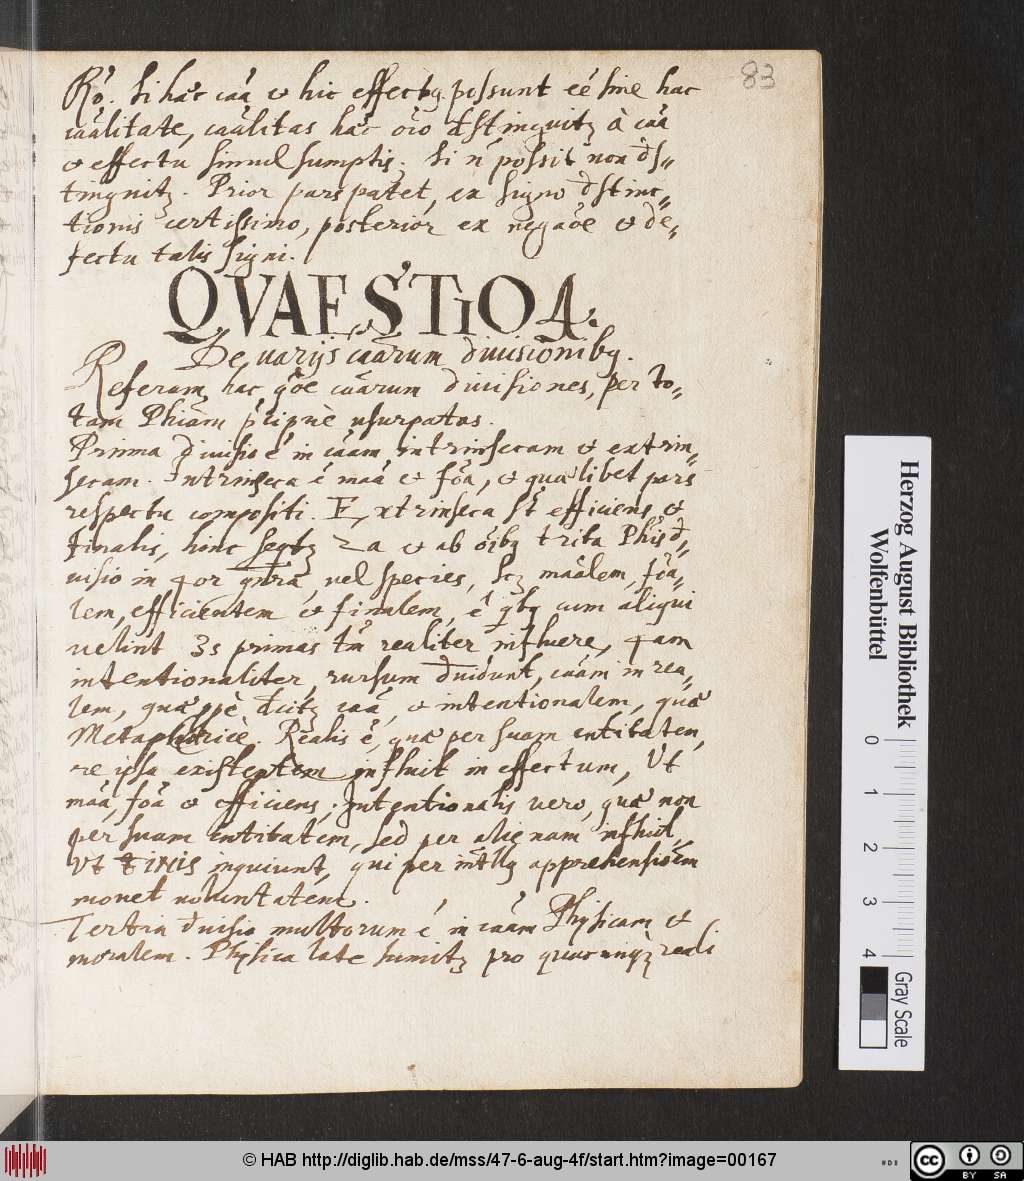 83
Ró. Si haec caã & hic effectq. possunt eé sine hac
caũlitate, caũlitas haec oĩo distinguitz à caã
& effectu simul sumptis. Si ñ possit non dis-
tinguitz. Prior pars patet, ex signo distinc-
tionis certissimo, posterior ex negaõe & de-
fectu talis signi.
QVAESTIO 4.
De varijs caãrum divisionibq.
Referam hac qõe caãrum divisiones, per to-
tam Phiãm usurpatas.
Prima divisio é in caãm intrinsecam & extrin-
secam. Intrinseca é maã & foã, & quaelibet pars
respectu compositi. Extrinseca st efficiens &
finalis, hinc seqtz 2a & ab oĩbq trita Phis di-
visio in 4or gnra, vel species, scz maãlem, foã-
lem, efficientem & finalem, é qbq cum aliqui
velint 3s primas tm realiter influere, 4am
intentionaliter, rursum dividunt, caãm in rea-
lem, quae ppè dicitz caã, & intentionalem, quae
Metaphoricè. Realis é, quae per suam entitatem,
re ipsa existentem influit in effectum, Vt
maã, foã & efficiens; Intentionalis vero, quae non
per suam entitatem, sed per alienam influit,
Vt FINIS inquiunt, qui per apprehensionem
movet voluntatem.
Tertia divisio multorum é in caãm Physicam &
moralem. Physica late sumitz pro quacunqz reali
Herzog August Bibliothek
Wolfenbüttel
0 1 2 3 4
Gray Scale
© HAB http://diglib.hab.de/mss/47-6-aug-4f/start.htm?image=00167
cc BY SA